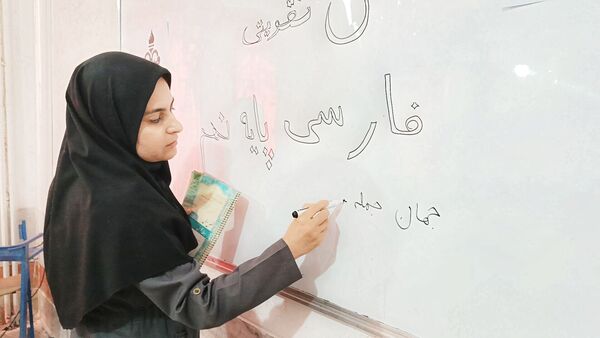 تقویتی
فارسی پایه نهم
جهان جمله